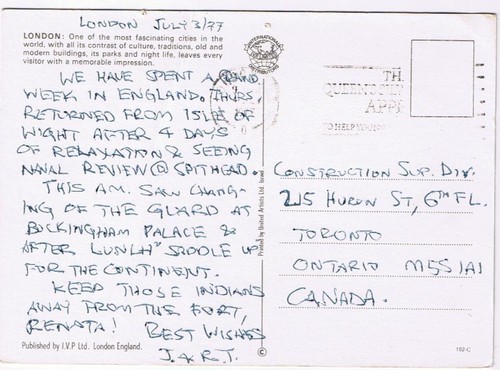 LONDON JULY 3/77
LONDON: One of the most fascinating cities in the
world, with all its contrast of culture, traditions, old and
modern buildings, its parks and night life, leaves every
visitor with a memorable impression.
WE HAVE SPENT A GRAND
WEEK IN ENGLAND. THURS.
RETURNED FROM ISLE OF
WIGHT AFTER 4 DAYS
OF RELAXATION & SEEING
NAVAL REVIEW @ SPITHEAD.
THIS AM. SAW CHANG-
ING OF THE GUARD AT
BUCKINGHAM PALACE &
AFTER LUNCH SADDLE UP
FOR THE CONTINENT.
KEEP THOSE INDIANS
AWAY FROM THE FORT,
RENATA! BEST WISHES
J. & R.T.
Published by I.V.P Ltd. London England.
Printed by United Artists Ltd. Israel
©
TH
QUEEN'S
APPE
TO HELP YOU
CONSTRUCTION SUP. DIV.
215 HURON ST, 6TH FL.
TORONTO
ONTARIO M5S 1A1
CANADA.
192-C